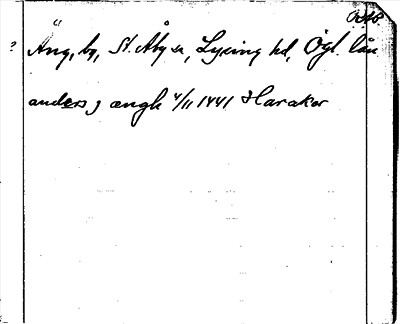 Äng, by, St. Åby sn, Lysing hd, Ögl. län
anders j ængh 4/11 1441 Haraker